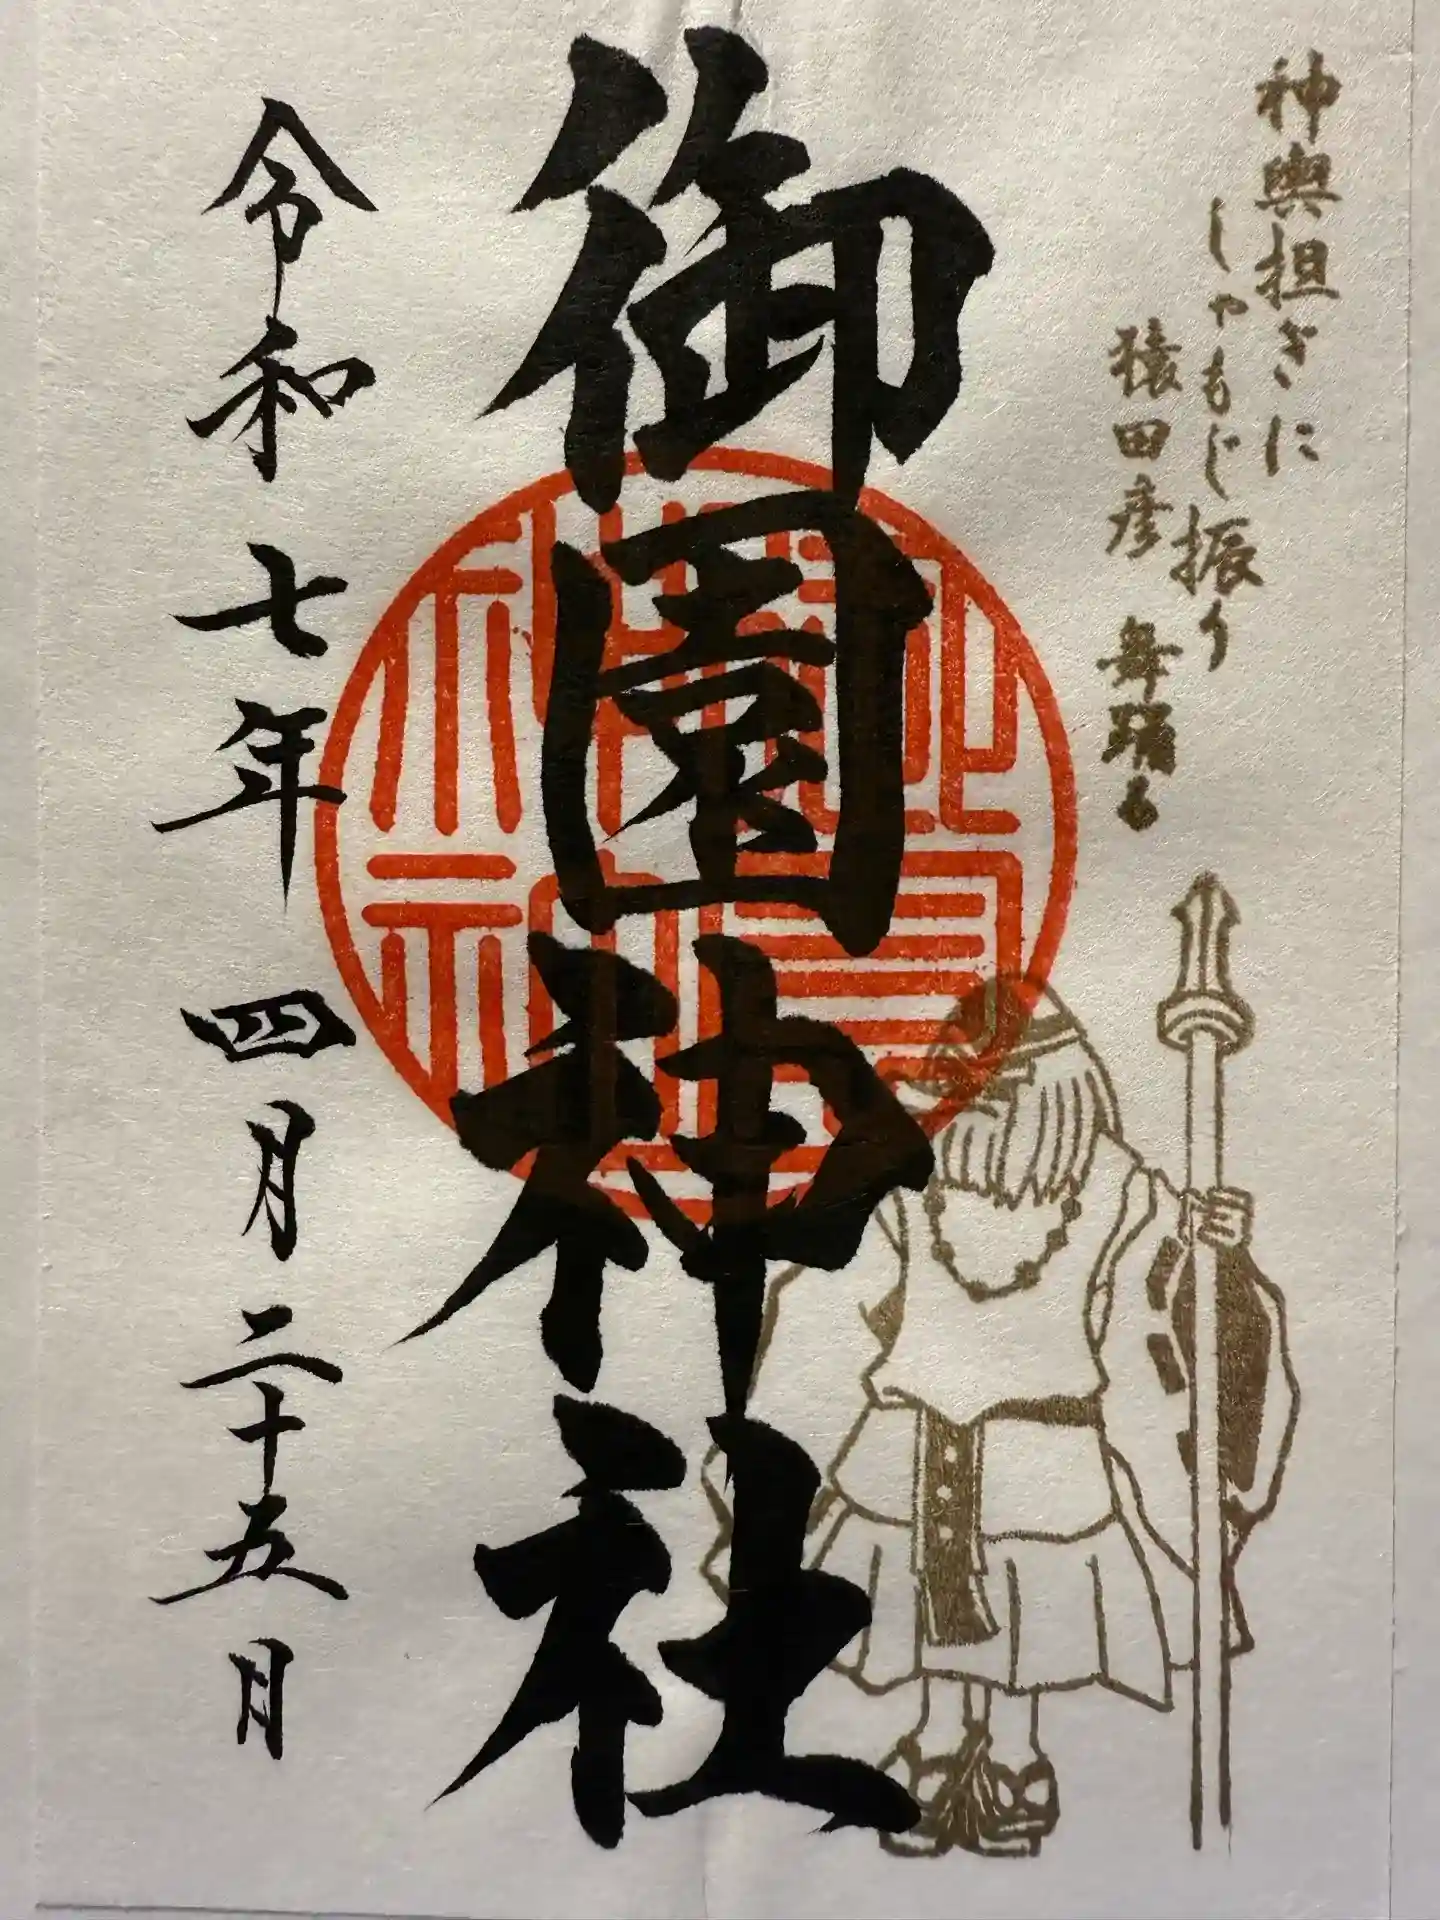 神輿担ぎに
しゃもじ振り
猿田彦 舞踊る
御園神社
令和七年四月二十五日